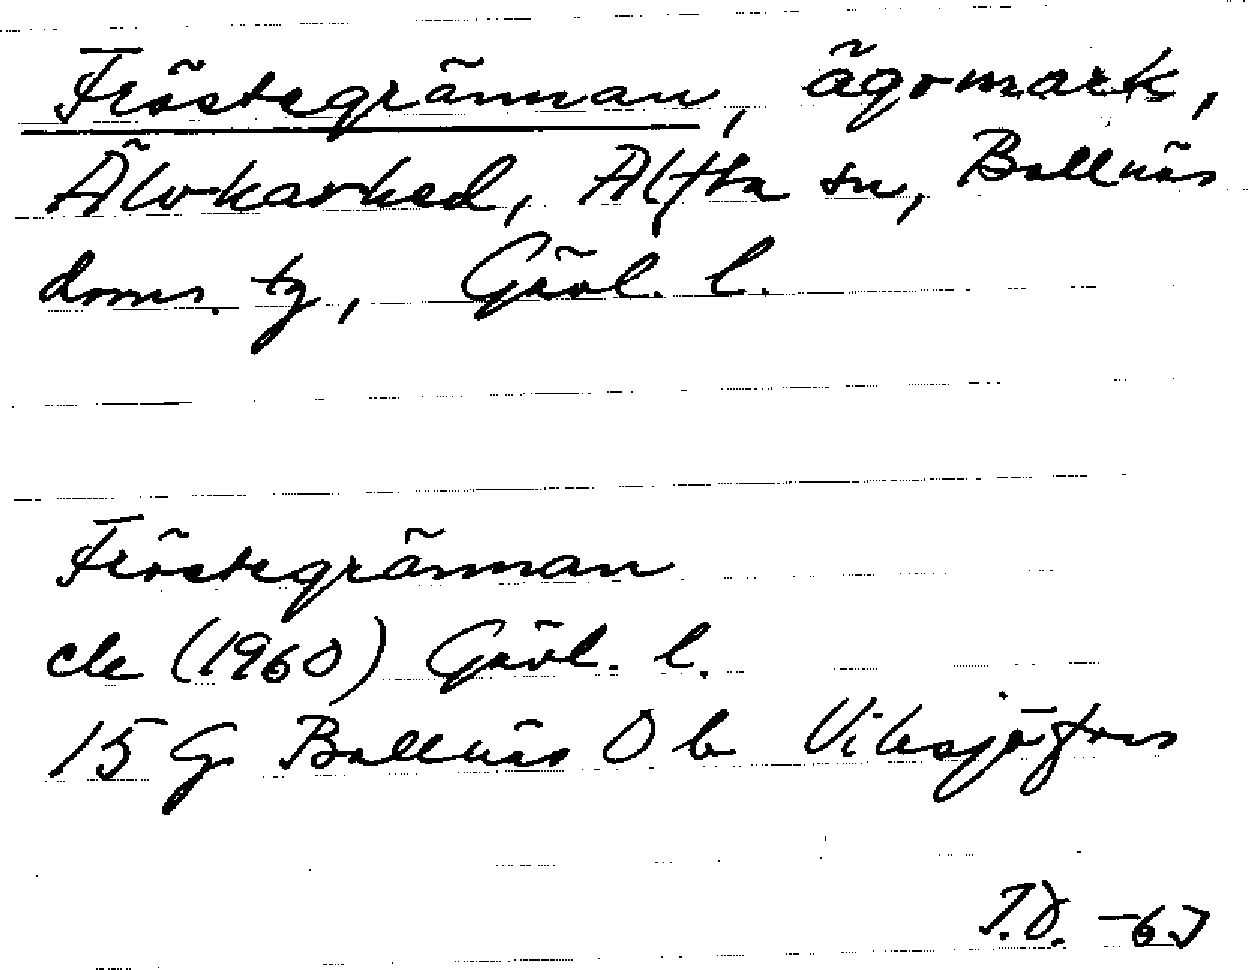 Fröstegrännan, ägomark,
Älvkarhed, Alfta sn, Bollnäs
doms. tg, Gävl. l.
Fröstegrännan
ek (1960) Gävl. l.
15 G Bollnäs O b Viksjöfors
T.D. -63